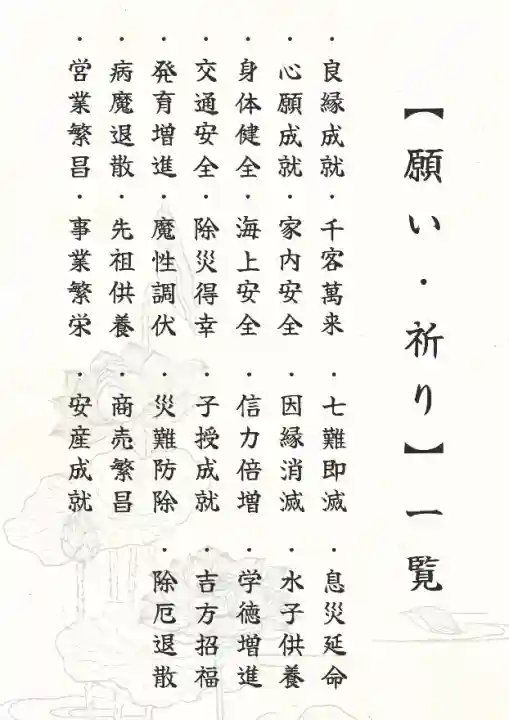 【願い・祈り】一覧
・良縁成就・千客萬来・七難即滅・息災延命
・心願成就・家内安全・因縁消滅・水子供養
・身体健全・海上安全・信力倍増・学徳増進
・交通安全・除災得幸・子授成就・吉方招福
・発育増進・魔性調伏・災難防除・除厄退散
・病魔退散・先祖供養・商売繁昌
・営業繁昌・事業繁栄・安産成就